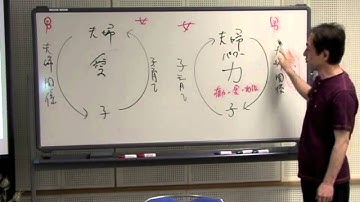 男
女
夫婦
愛
子
夫婦関係
子育て
女
男
夫婦
パワー
力
子
子育て